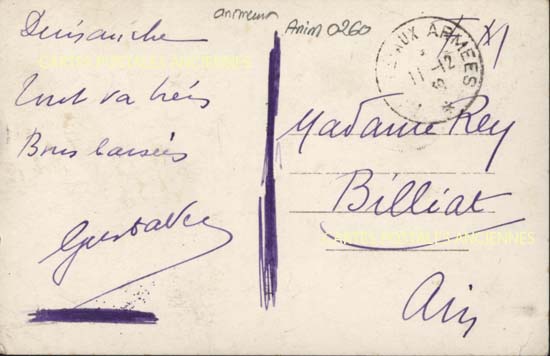 Dimanche
Tout va très
Bons baisers
Gustave
Anim 0260
F M
AUX ARMEES
11-12
*
Madame Rey
Billiat
Ain
CARTES POSTALES ANCIENNES
CARTES POSTALES ANCIENNES